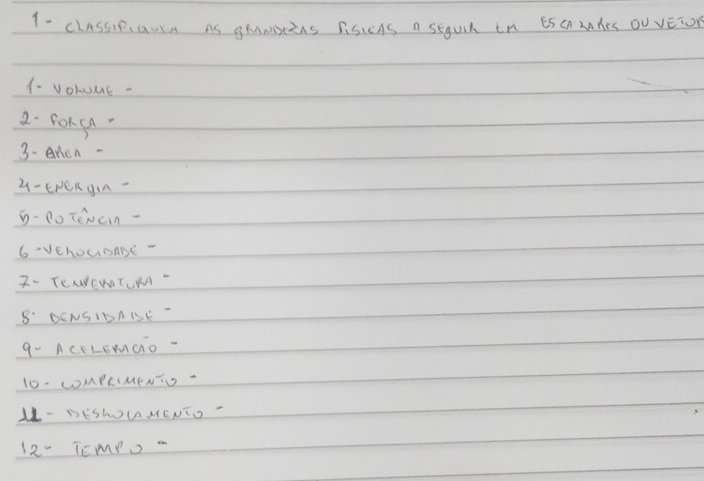 1- CLASSIFIQUEM AS GRANDEZAS FÍSICAS A SEGUIR EM ESCALARES OU VETOR
1- VOLUME -
2- FORÇA -
3- ÁREA -
4- ENERGIA -
5- POTÊNCIA -
6- VELOCIDADE -
7- TEMPERATURA -
8- DENSIDADE -
9- ACELERAÇÃO -
10- COMPRIMENTO -
11- DESLOCAMENTO -
12- TEMPO -